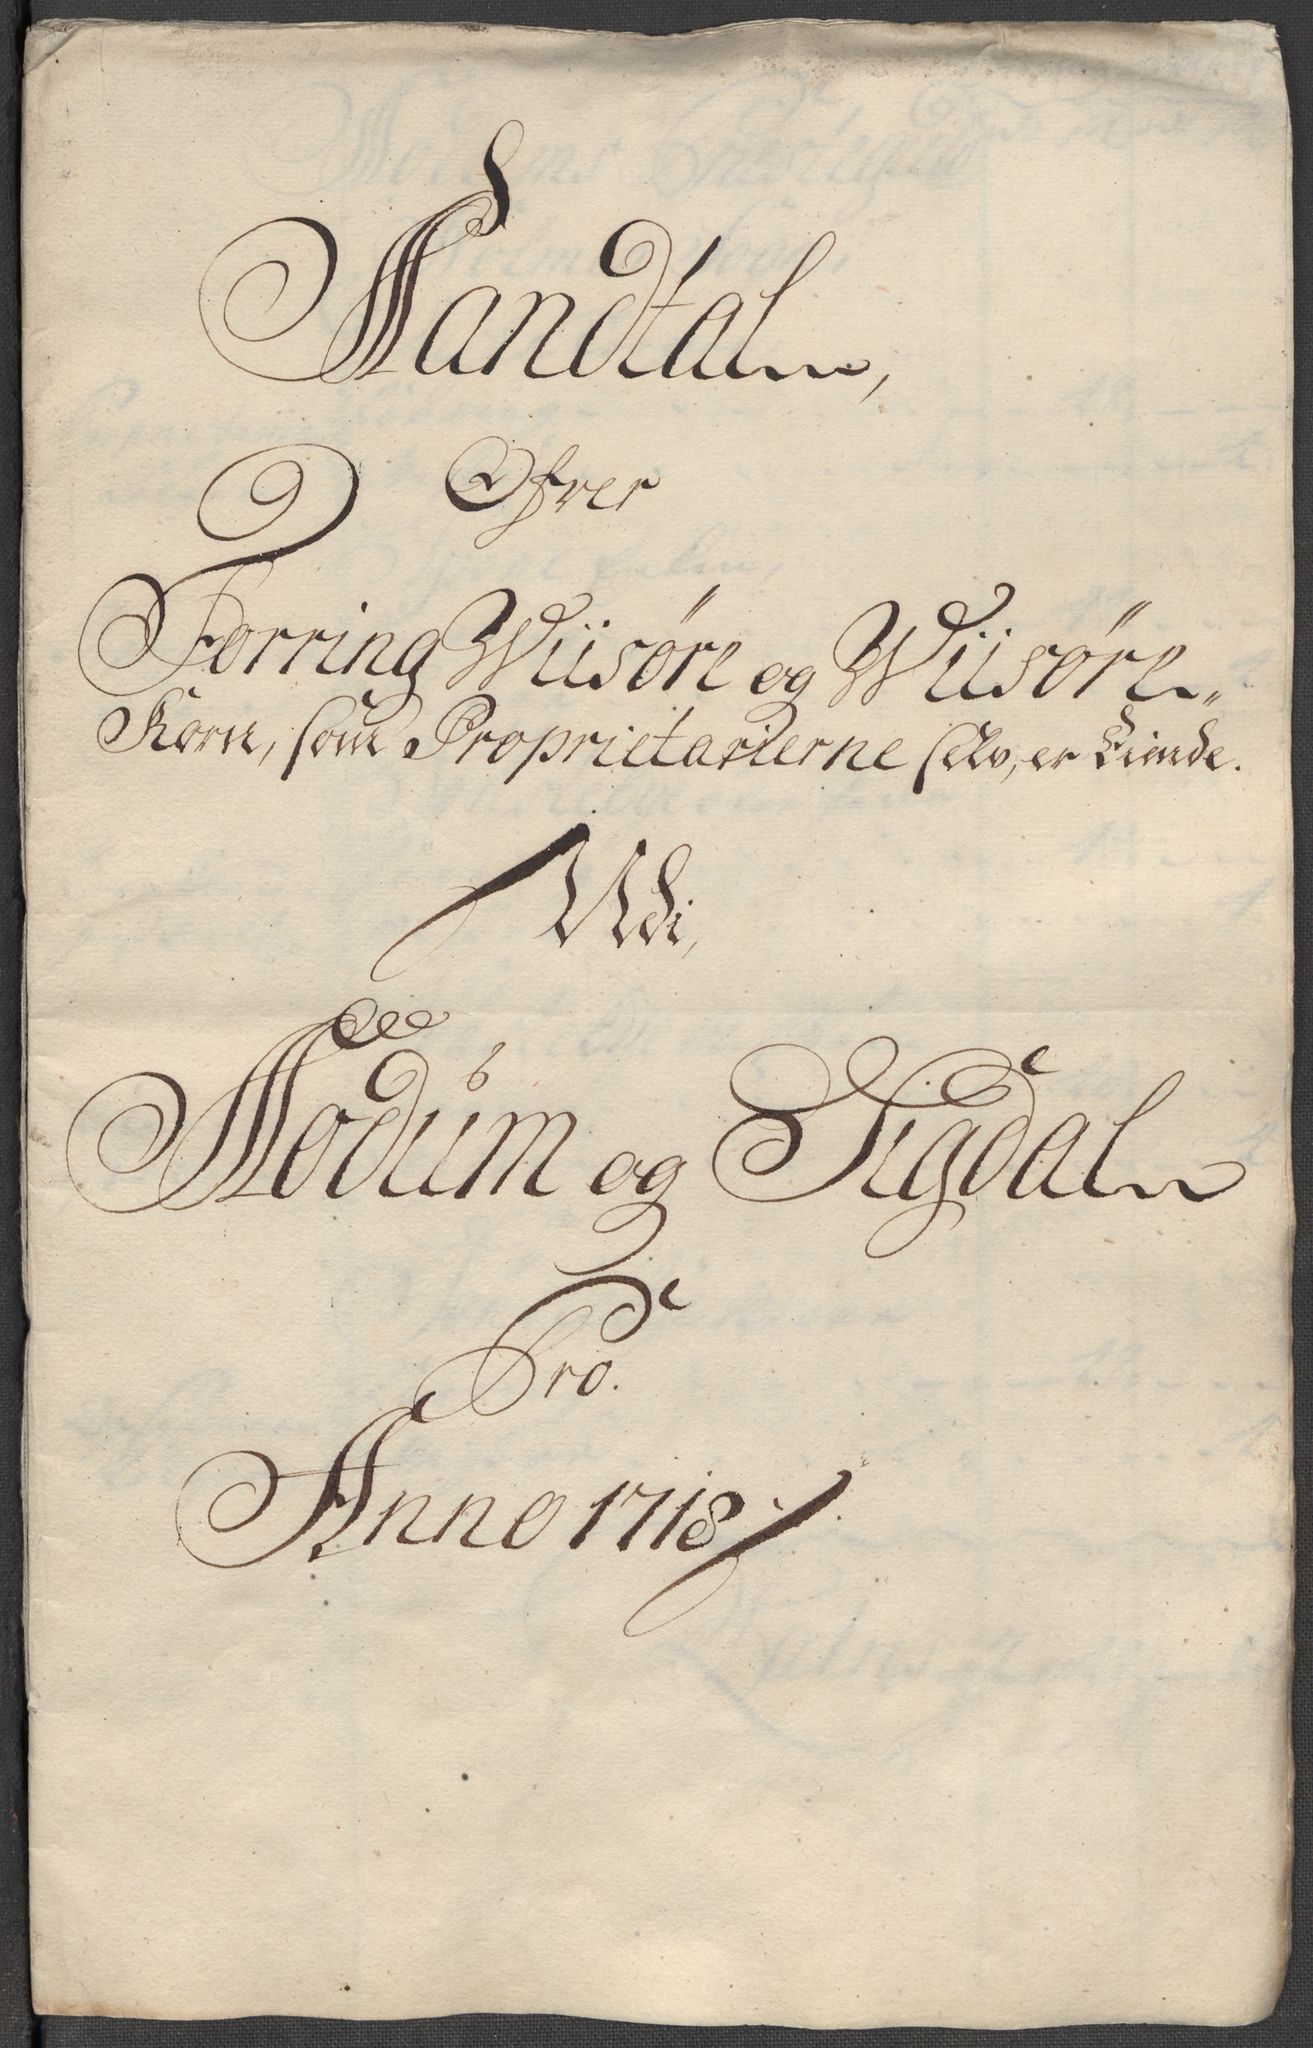 Mandtal,
Ofver
Forring Wiisøre og Wiisøre„
Korn, som Proprietarierne selv, er Eiende.
Udi,
Modum og Sigdal
Pro.
Anno 1718